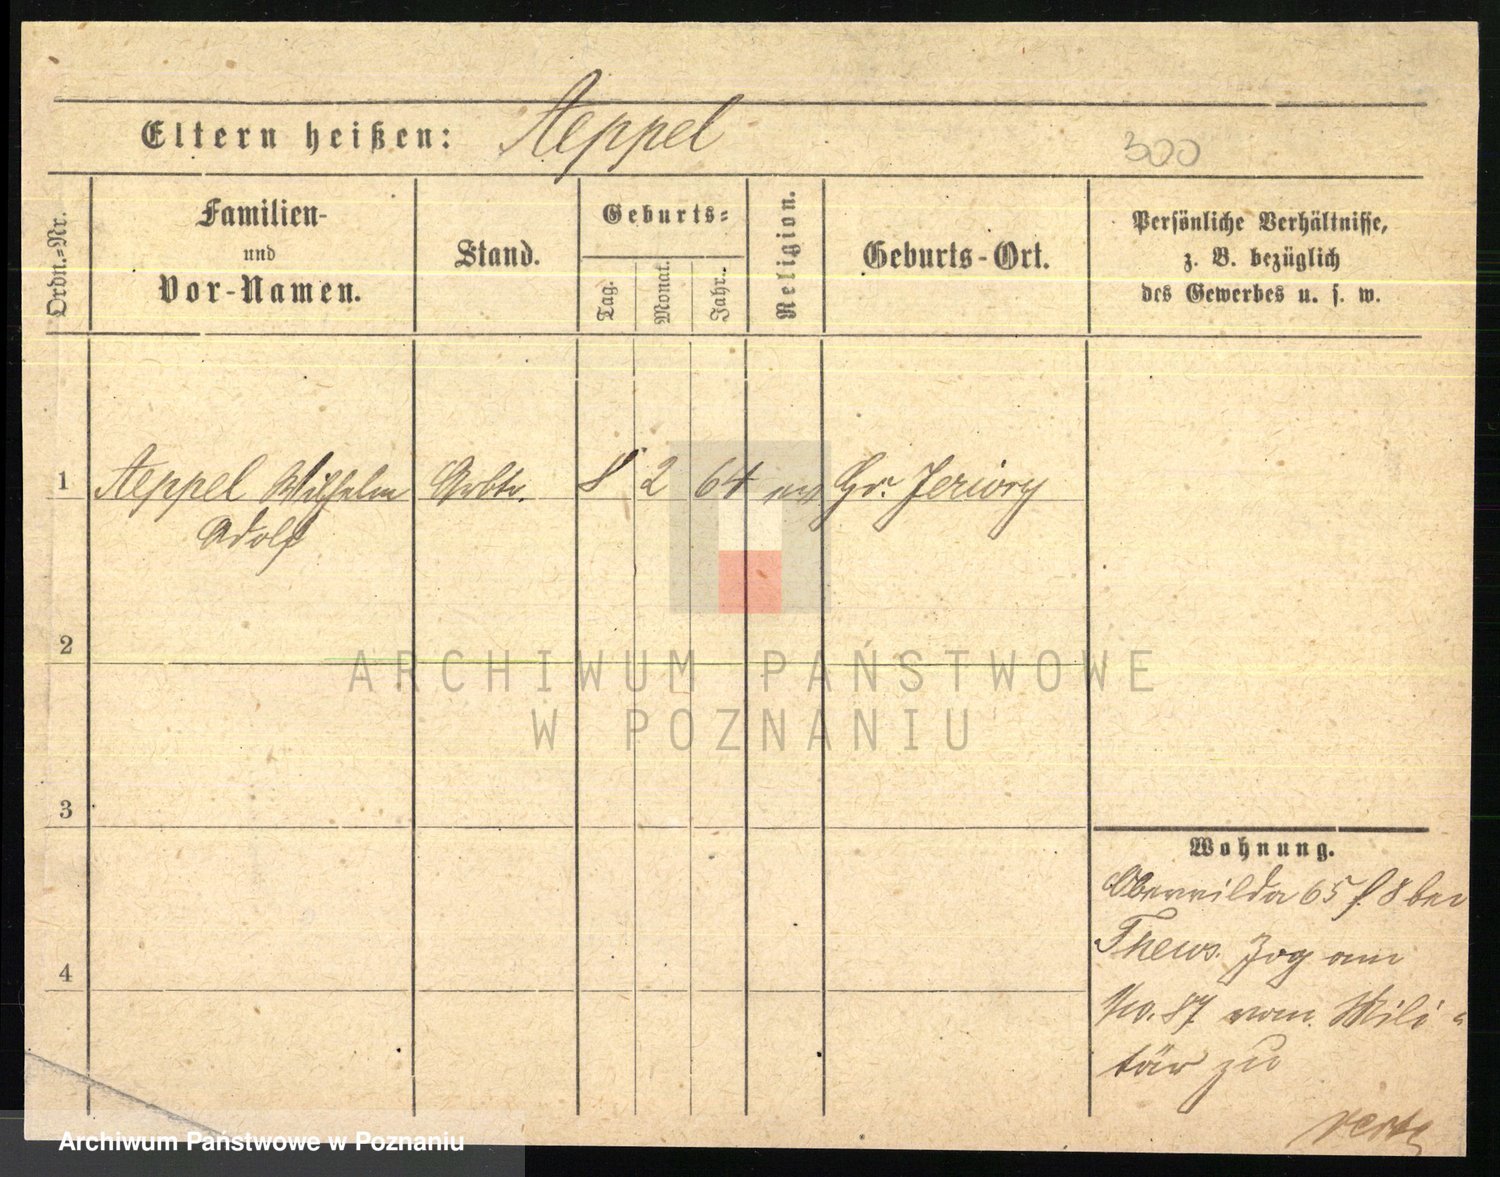 Eltern heißen: Aeppel
300
Ordn.-Nr.
Familien-
und
Vor-Namen.
Stand.
Geburts-
Tag.
Monat.
Jahr.
Religion.
Geburts-Ort.
Persönliche Verhältnisse,
z. B. bezüglich
des Gewerbes u. s. w.
1 Aeppel Wilhelm Arbtr. 8 2 64 ev Gr. Jeziory
Adolf
2
ARCHIWUM PAŃSTWOWE
W POZNANIU
3
Wohnung.
Oberwilda 65 f. 8 bei
Thews. Zog am
87 vom Mili-
4
tär zu
verte
Archiwum Państwowe w Poznaniu